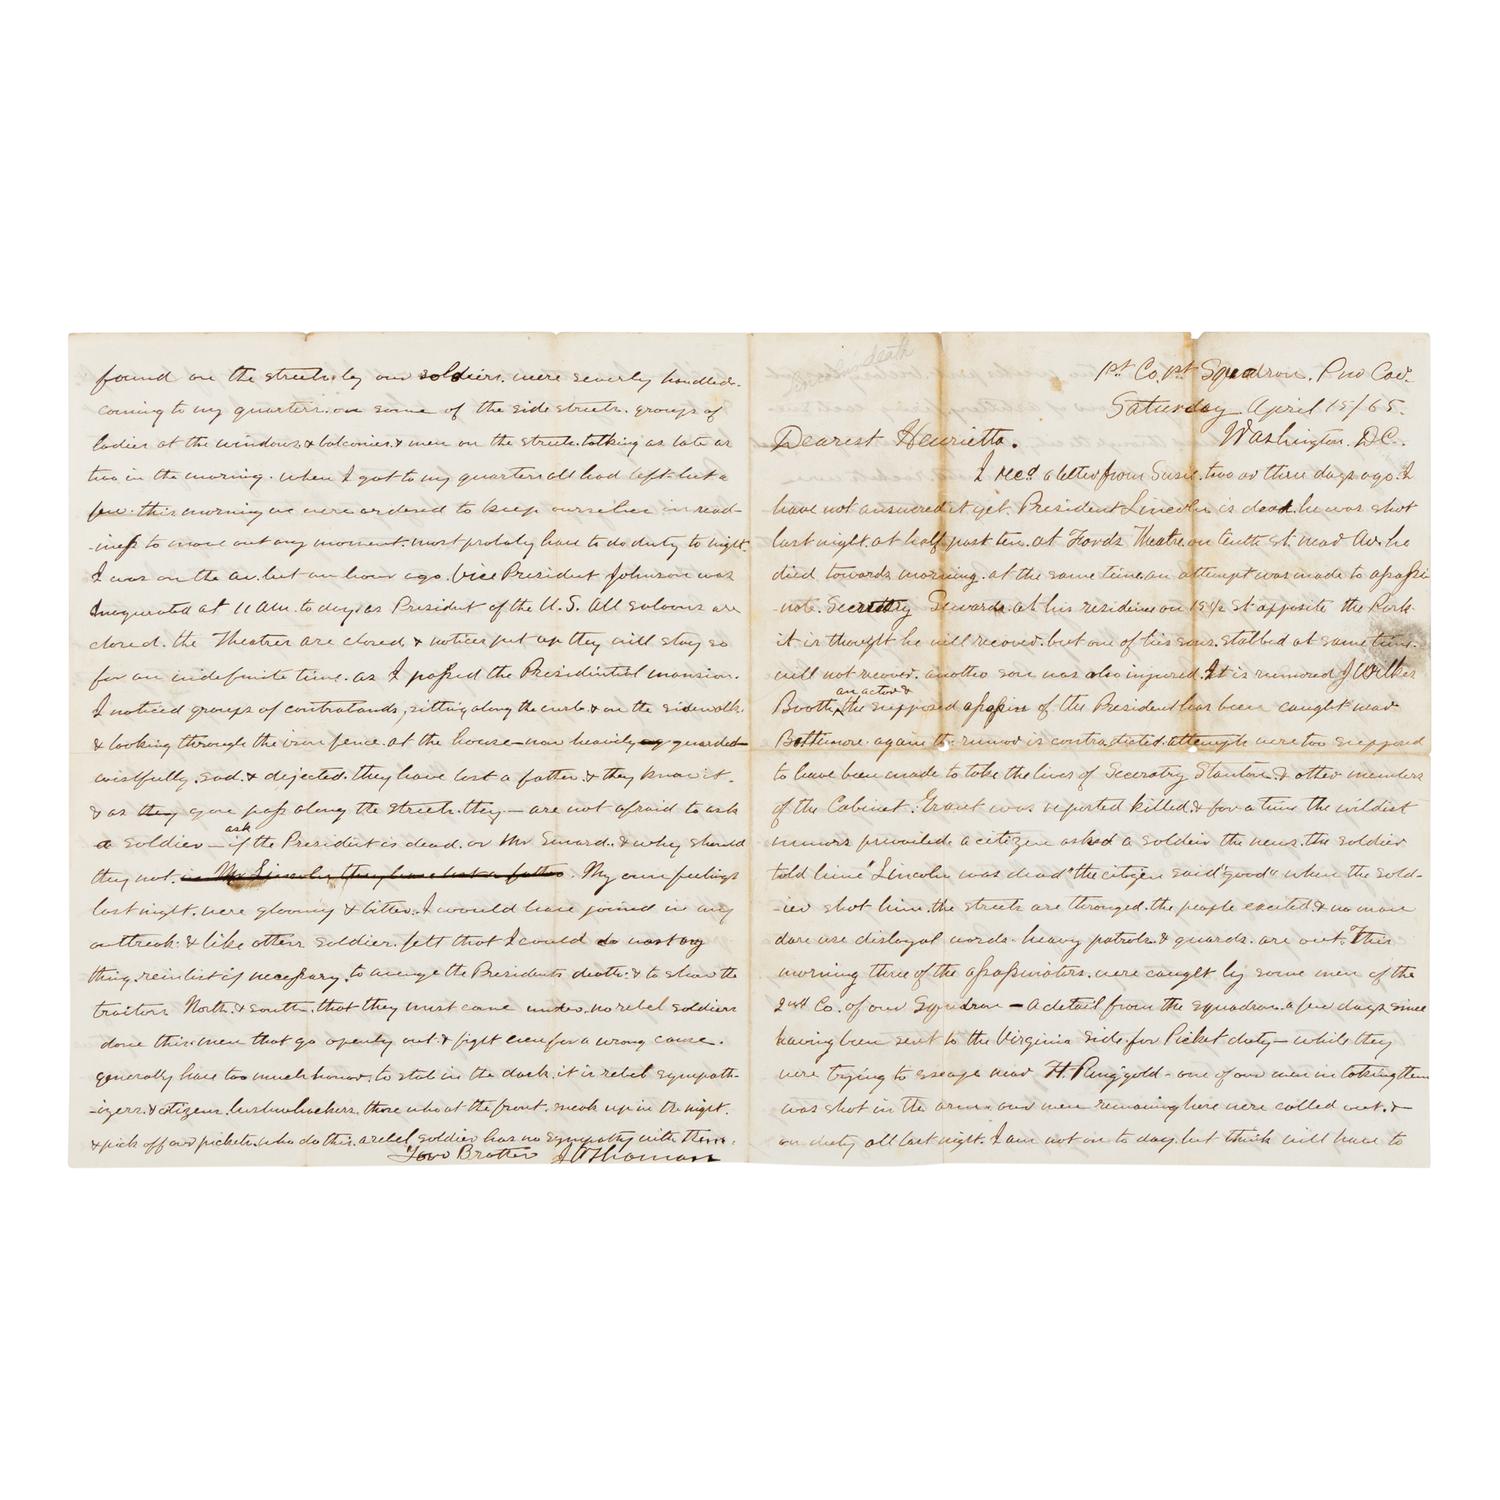 death
1st Co. 1st Squadron. Pro Cav.
Saturday April 15/65.
Washington. D.C.
Dearest Henrietta.
I recd a letter from Susie. two or three days ago. I
have not answered it yet. President Lincoln is dead. he was shot
last night. at half past ten. at Fords Theatre. on tenth st. near Av. he
died towards morning. at the same time. an attempt was made to assassi-
-nate. Secretary Sewards. at his residence on 15 1/2 st opposite the Park
it is thought he will recover. but one of his sons. stabbed at same time.
will not recover. another son was also injured. It is rumored J Wilkes
Booth, an actor & the supposed assassin of the President has been caught near
Baltimore. again the rumor is contradicted. attempts were too supposed
to have been made to take the lives of Secretary Stanton. & other members
of the Cabinet. Grant was reported killed. & for a time the wildest
rumors prevailed. a citizen asked a soldier the news. the soldier
told him "Lincoln was dead" the citizen said "good" when the sold-
-ier shot him. the streets are thronged. the people excited. & no man
dare use disloyal words. heavy patrols & guards. are out. This
morning three of the assassinators. were caught by some men of the
2nd Co. of our Squadron — a detail from the squadron. a few days since
having been sent to the Virginia side. for Picket duty — while they
were trying to escape near Ft. Ringgold - one of our men in taking them
was shot in the arm. our men remaining here were called out. &
on duty all last night. I am not on to day. but think will have to
found on the streets. by our soldiers. were severly handled.
coming to my quarters. on some of the side streets. groups of
ladies at the windows & balconies & men on the streets. talking as late as
two in the morning. when I got to my quarters all had left. but a
few. this morning we were ordered to keep ourselves in read-
-iness to move out any moment. most probaly have to do duty to night.
I was on the av. but an hour ago. Vice President Johnson was
Inagurated at 11 A.M. to day. as President of the U.S. All saloons are
closed. the Theatres are closed & notices put up they will stay so
for an indefinite time. as I passed the Presidential mansion.
I noticed groups of contrabands, sitting along the curb. & on the sidewalk.
& looking through the iron fence. at the house — now heavily guarded —
wistfully. sad. & dejected. they have lost a father. & they know it.
& as they you pass along the streets. they — are not afraid to ask
a soldier — ask if the President is dead. or Mr Seward. & why should
they not. in Mr Lincoln they have lost a father. My own feelings
last night. were gloomy & bitter. I would have joined in any
outbreak. & like other soldier. felt that I could do most any
thing. reinlist if necessary. to avenge the Presidents death. & to show the
traitors North. & south. that they must come under. no rebel soldiers
done this. men that go openly out. & fight even for a wrong cause.
generally have too much honor. to stab in the dark. it is rebel sympath-
-izers. & citizens. bushwhackers. those who at the front. sneak up in the night.
& pick off our pickets. who do this. a rebel soldier has no sympathy with them.
Your Brother J W Thomas